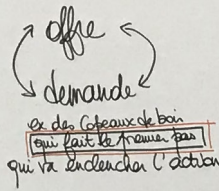 offre
demande
ex des copeaux de bois
qui fait le premier pas
qui va enclencher l'action